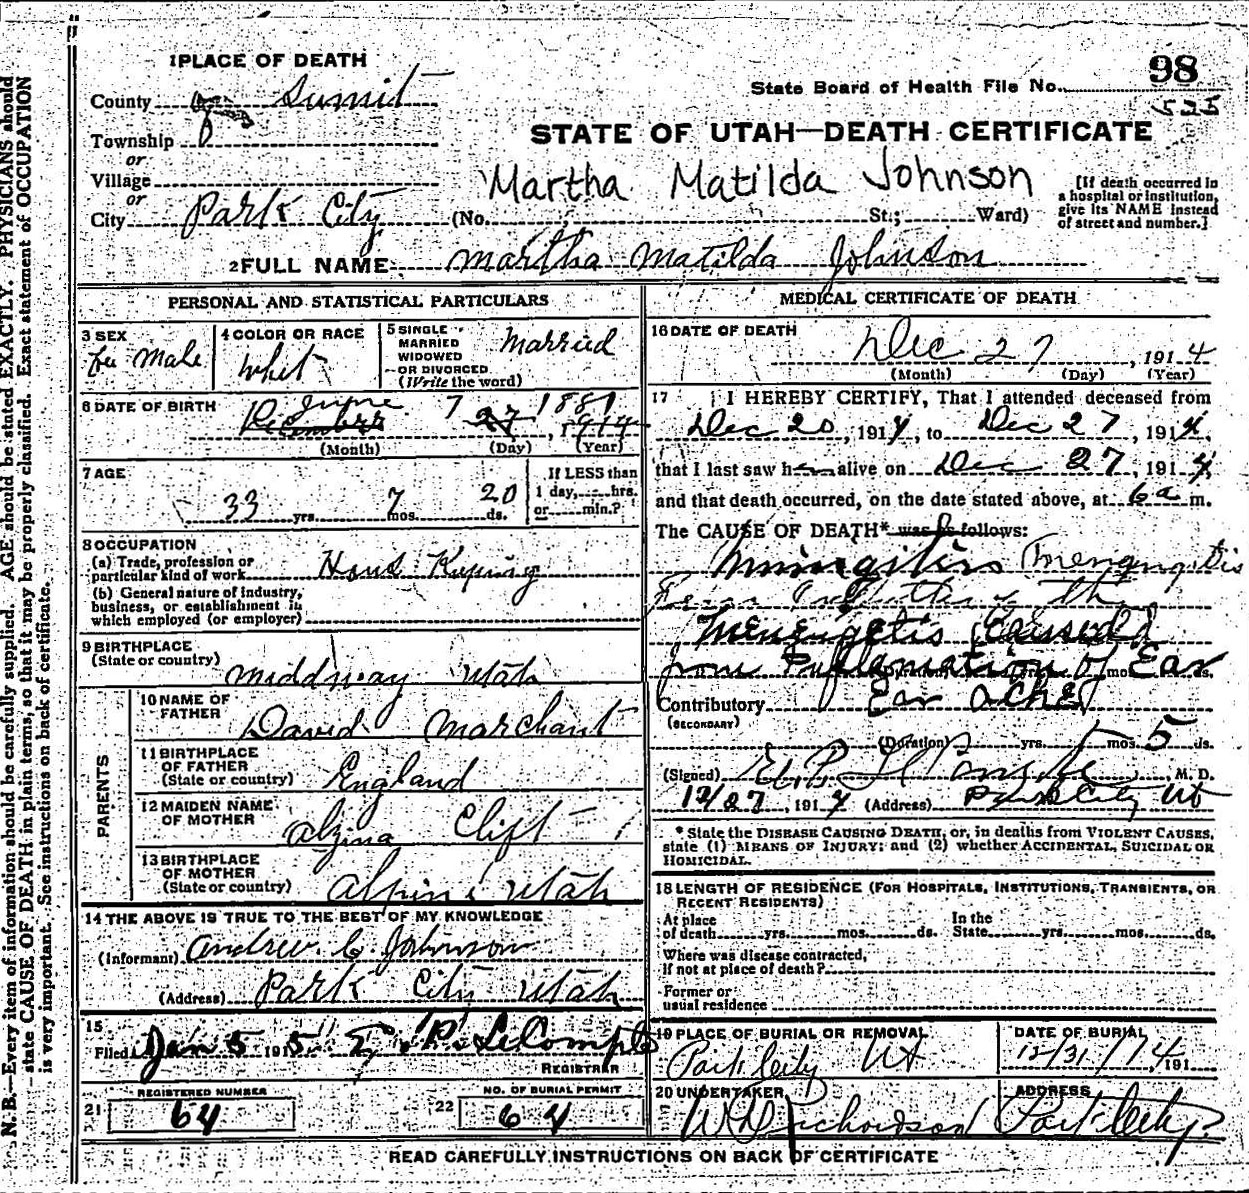 N. B.—Every item of information should be carefully supplied. AGE should be stated EXACTLY. PHYSICIANS should
state CAUSE OF DEATH in plain terms, so that it may be properly classified. Exact statement of OCCUPATION
is very important. See instructions on back of certificate.
1 PLACE OF DEATH
County of Summit
Township
or
Village
or
City Park City
State Board of Health File No. 98
525
STATE OF UTAH—DEATH CERTIFICATE
Martha Matilda Johnson
(No. St.; Ward)
[If death occurred in
a hospital or institution,
give its NAME instead
of street and number.]
2 FULL NAME Martha Matilda Johnson
PERSONAL AND STATISTICAL PARTICULARS
3 SEX
fe Male
4 COLOR OR RACE
Whit
5 SINGLE
MARRIED
WIDOWED
OR DIVORCED
(Write the word)
Married
6 DATE OF BIRTH
June 7 1881
December 27, 1914
(Month) (Day) (Year)
7 AGE
33 yrs. 7 mos. 20 ds.
If LESS than
1 day, hrs.
or min.?
8 OCCUPATION
(a) Trade, profession or
particular kind of work Hous Kuping
(b) General nature of industry,
business, or establishment in
which employed (or employer)
9 BIRTHPLACE
(State or country)
Middway Utah
PARENTS
10 NAME OF
FATHER
David Marchant
11 BIRTHPLACE
OF FATHER
(State or country)
England
12 MAIDEN NAME
OF MOTHER
Alzina Clift
13 BIRTHPLACE
OF MOTHER
(State or country)
Alpine Utah
14 THE ABOVE IS TRUE TO THE BEST OF MY KNOWLEDGE
(Informant) Andrew C. Johnson
(Address) Park City Utah
15
Filed Jan 5 1915 E. P. LeCompte
REGISTRAR
REGISTERED NUMBER
21 64
NO. OF BURIAL PERMIT
22 64
MEDICAL CERTIFICATE OF DEATH
16 DATE OF DEATH
Dec 27, 1914
(Month) (Day) (Year)
17 I HEREBY CERTIFY, That I attended deceased from
Dec 20, 1914, to Dec 27, 1914,
that I last saw her alive on Dec 27, 1914,
and that death occurred, on the date stated above, at 6 a m.
The CAUSE OF DEATH* was as follows:
(Menengitis
Menengetis Caused
from Inflamation of Ear
(Duration) yrs. mos. ds.
Contributory Ear ache
(SECONDARY)
(Duration) yrs. mos. 5 ds.
(Signed) M. D.
12/27, 1914 (Address) Park City Ut
* State the DISEASE CAUSING DEATH, or, in deaths from VIOLENT CAUSES,
state (1) MEANS OF INJURY; and (2) whether ACCIDENTAL, SUICIDAL OR
HOMICIDAL.
18 LENGTH OF RESIDENCE (FOR HOSPITALS, INSTITUTIONS, TRANSIENTS, OR
RECENT RESIDENTS)
At place
of death yrs. mos. ds.
In the
State yrs. mos. ds.
Where was disease contracted,
if not at place of death?
Former or
usual residence
19 PLACE OF BURIAL OR REMOVAL
Park City Ut
DATE OF BURIAL
12/31/14 191
20 UNDERTAKER
Richardson
ADDRESS
Park City
READ CAREFULLY INSTRUCTIONS ON BACK OF CERTIFICATE